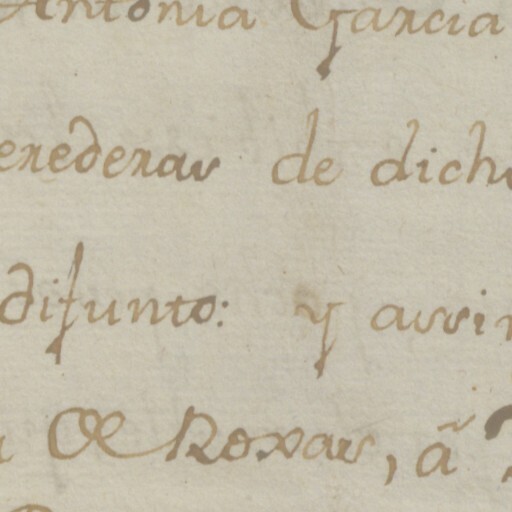 Antonia Garcia
erederas de dich
difunto: y assi
de Roxas, â